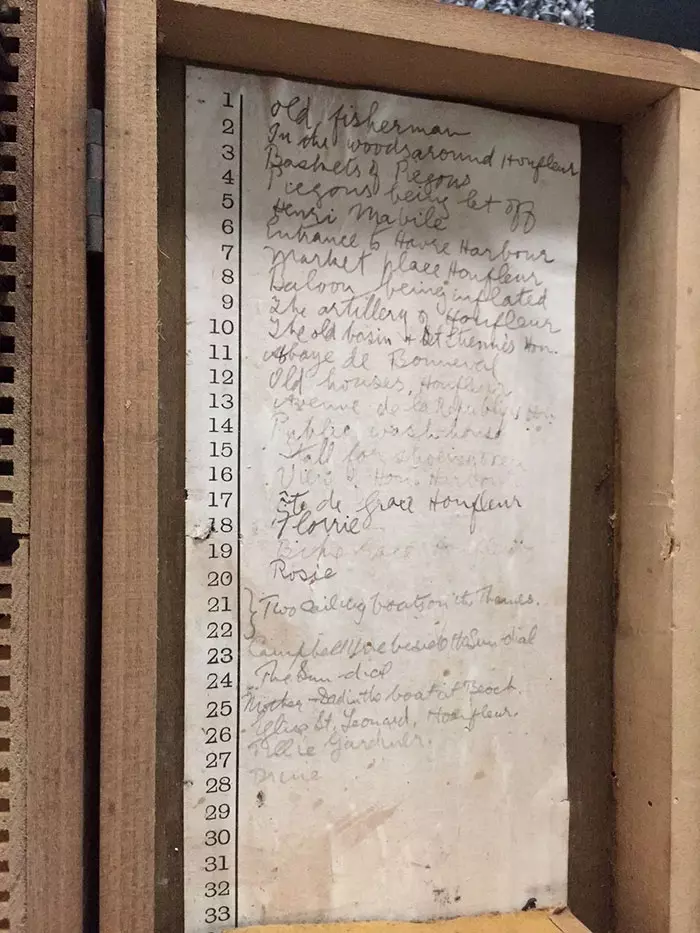 1 old fisherman
2 In the woods around Honfleur
3 Baskets of Piegons
4 Piegons being let off
5 Henri Mabile
6 Entrance to Havre Harbour
7 Market place Honfleur
8 Baloon being inflated
9 The artillery of Honfleur
10 The old basin & St Etiennes Hon.
11 Abbaye de Bonneval
12 Old houses, Honfleur
13 Avenue de la Republique Hon.
14 Public wash-house
15 Stall for
16 View Hon. Harbour
17 Cte de Grace Honfleur
18 Florrie
19
20 Rosie
21 Two sailing boats on the Thames.
22
23 Campbell beside the Sun-dial
24 The Sun-dial
25 Mother Dad in the boat at
26 Eglise St. Leonard, Honfleur.
27 Gardner.
28
29
30
31
32
33